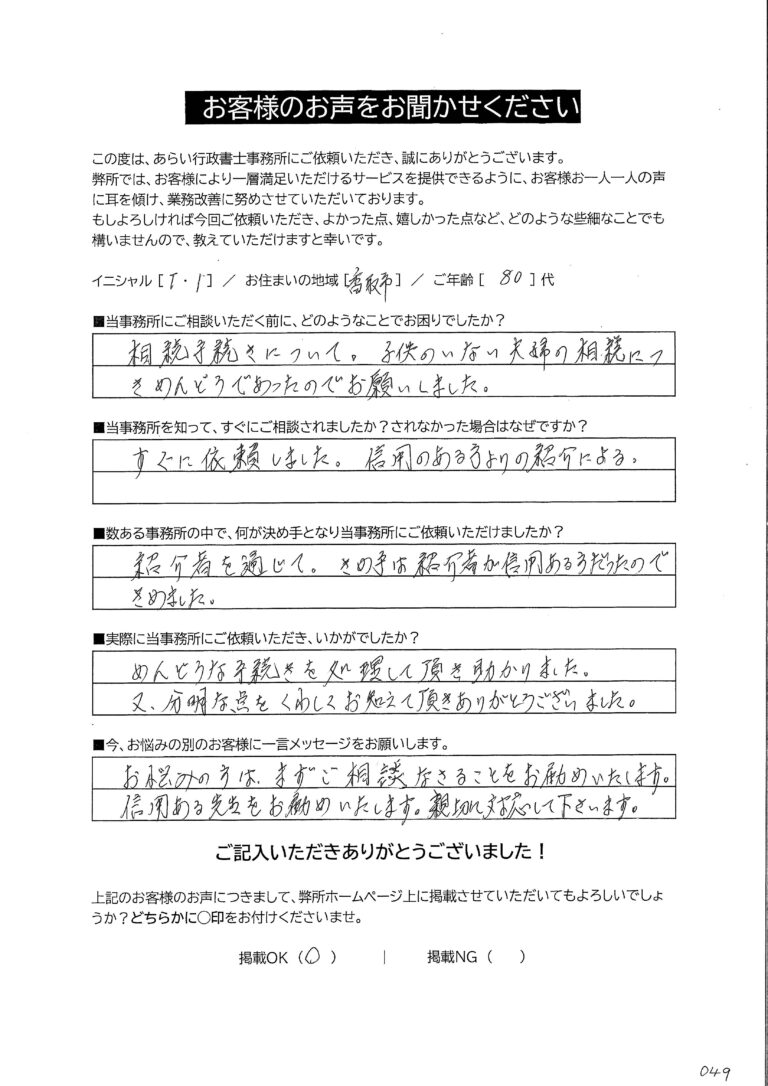 お客様のお声をお聞かせください
この度は、あらい行政書士事務所にご依頼いただき、誠にありがとうございます。
弊所では、お客様により一層満足いただけるサービスを提供できるように、お客様お一人一人の声
に耳を傾け、業務改善に努めさせていただいております。
もしよろしければ今回ご依頼いただき、よかった点、嬉しかった点など、どのような些細なことでも
構いませんので、教えていただけますと幸いです。
イニシャル [ T・I ] / お住まいの地域 [香取市] / ご年齢 [ 80 ] 代
■当事務所にご相談いただく前に、どのようなことでお困りでしたか？
相続手続きについて。子供のいない夫婦の相続につ
きめんどうであったのでお願いしました。
■当事務所を知って、すぐにご相談されましたか？されなかった場合はなぜですか？
すぐに依頼しました。信用のある方よりの紹介による。
■数ある事務所の中で、何が決め手となり当事務所にご依頼いただけましたか？
紹介者を通じて。きめ手は紹介者が信用ある方だったので
きめました。
■実際に当事務所にご依頼いただき、いかがでしたか？
めんどうな手続きを処理して頂き助かりました。
又、分明な点をくわしくお知えて頂きありがとうございました。
■今、お悩みの別のお客様に一言メッセージをお願いします。
お悩みの方は、まずご相談なさることをお勧めいたします。
信用ある先生をお勧めいたします。親切に対応して下さいます。
ご記入いただきありがとうございました！
上記のお客様のお声につきまして、弊所ホームページ上に掲載させていただいてもよろしいでしょ
うか？どちらかに〇印をお付けくださいませ。
掲載OK（〇） | 掲載NG（ ）
049